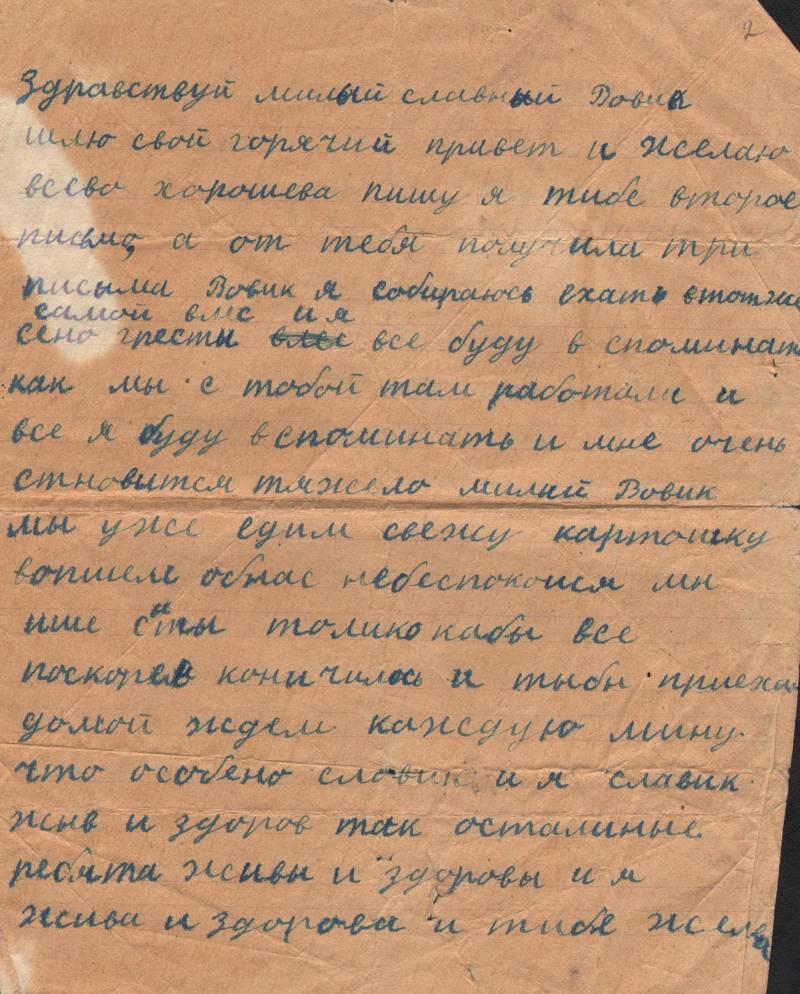 2
Здравствуй милый славный Вовик
шлю свой горячий привет и желаю
всево хорошева пишу я тибе второе
письмо, а от тебя получила три
писыма Вовик я собираюсь ехать втотже
самой влес и я
сено грести влес все буду в споминать
как мы с тобой там работали и
все я буду вспоминать и мне очень
становится тяжело милый Вовик
мы уже едим свежу картошку
вопшем обнас небеспокойся мы
ише сыты толико кабы все
поскорея кончилось и тыбы приехал
домой ждем каждую мину
что особено и я славик
жыв и здоров так осталиные
ребята живы и здоровы и я
жива и здорова и тибе жела